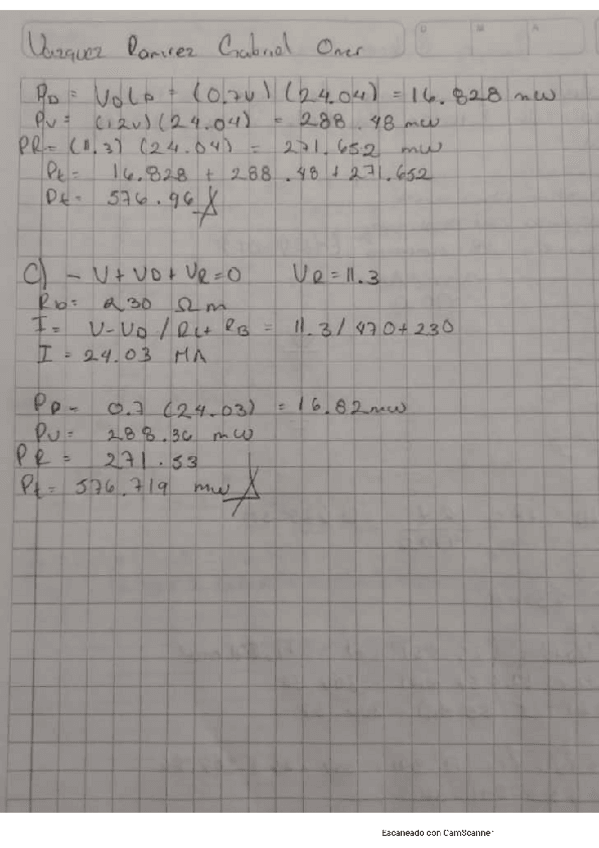 Vazquez Ramirez Gabriel Omar
PD = VD LD = (0.7V) (24.04) = 16.828 mW
PV = (12V) (24.04) = 288.48 mW
PR = (11.3) (24.04) = 271.652 mW
Pt = 16.828 + 288.48 + 271.652
Pt = 576.96
C) - V + VD + VR = 0 VR = 11.3
RD = 230 Ω m
I = V - VD / RL + RB = 11.3 / 470 + 230
I = 24.03 MA
PD = 0.7 (24.03) = 16.82 mW
PV = 288.36 mW
PR = 271.53
Pt = 576.719 mW
Escaneado con CamScanner